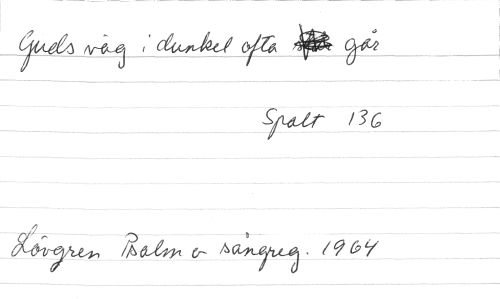 Guds väg i dunkel ofta går
Spalt 136
Lövgren Psalm o sångreg. 1964